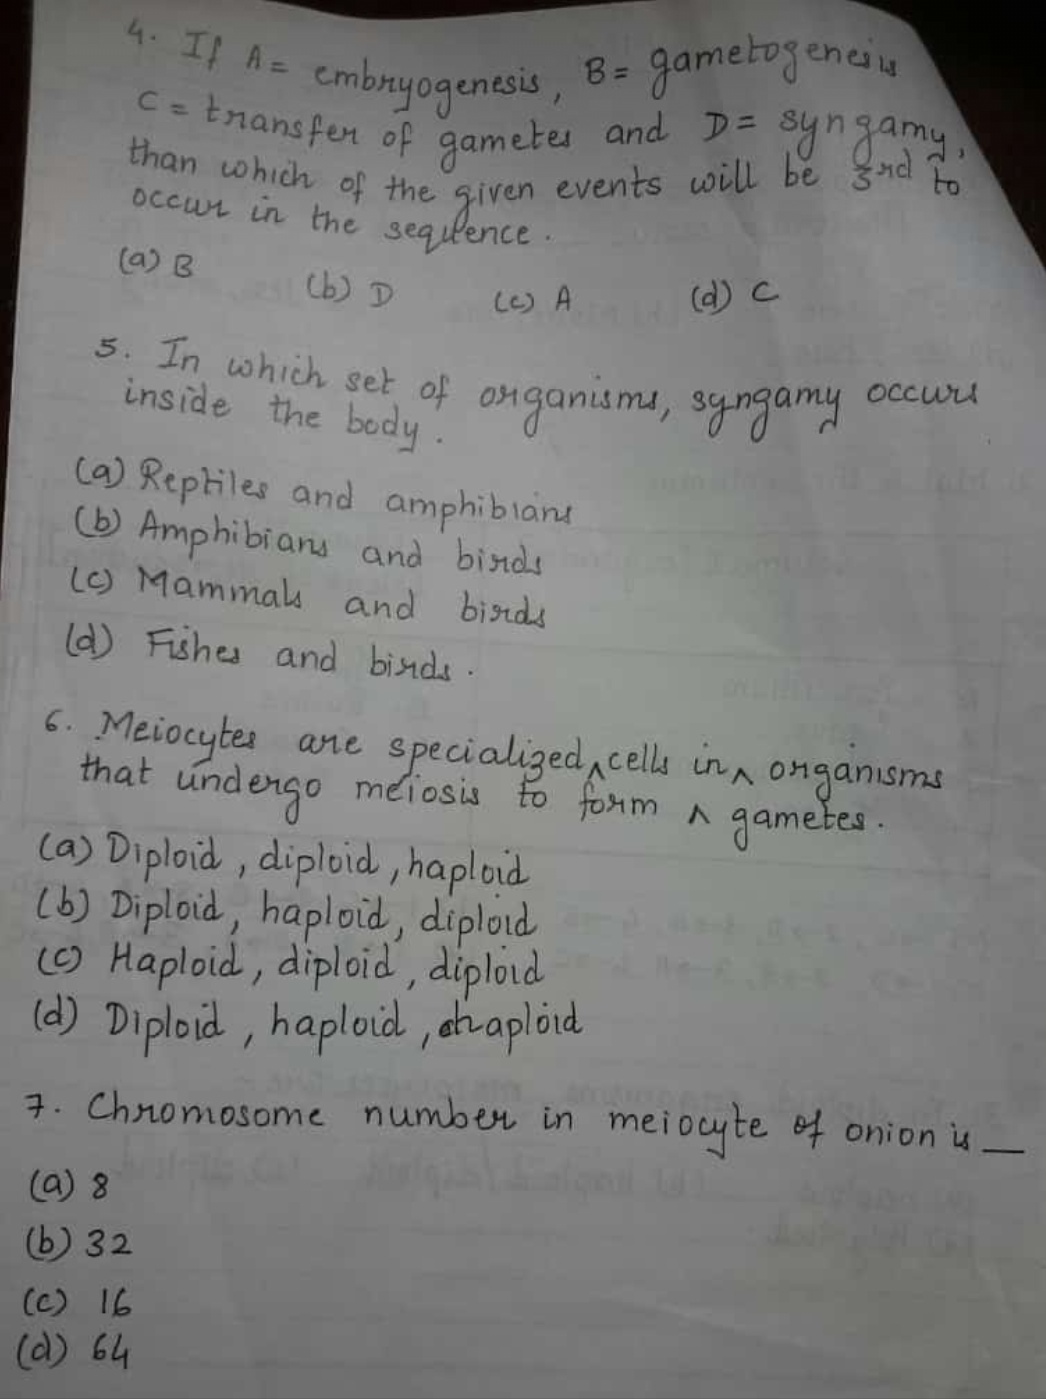 4. If A = embryogenesis, B = gametogenesis
C = transfer of gametes and D = syngamy,
than which of the given events will be 3rd to
occur in the sequence.
(a) B (b) D (c) A (d) C
5. In which set of organisms, syngamy occurs
inside the body.
(a) Reptiles and amphibians
(b) Amphibians and birds
(c) Mammals and birds
(d) Fishes and birds.
6. Meiocytes are specialized ^ cells in ^ organisms
that undergo meiosis to form ^ gametes.
(a) Diploid, diploid, haploid
(b) Diploid, haploid, diploid
(c) Haploid, diploid, diploid
(d) Diploid, haploid, haploid
7. Chromosome number in meiocyte of onion is __
(a) 8
(b) 32
(c) 16
(d) 64